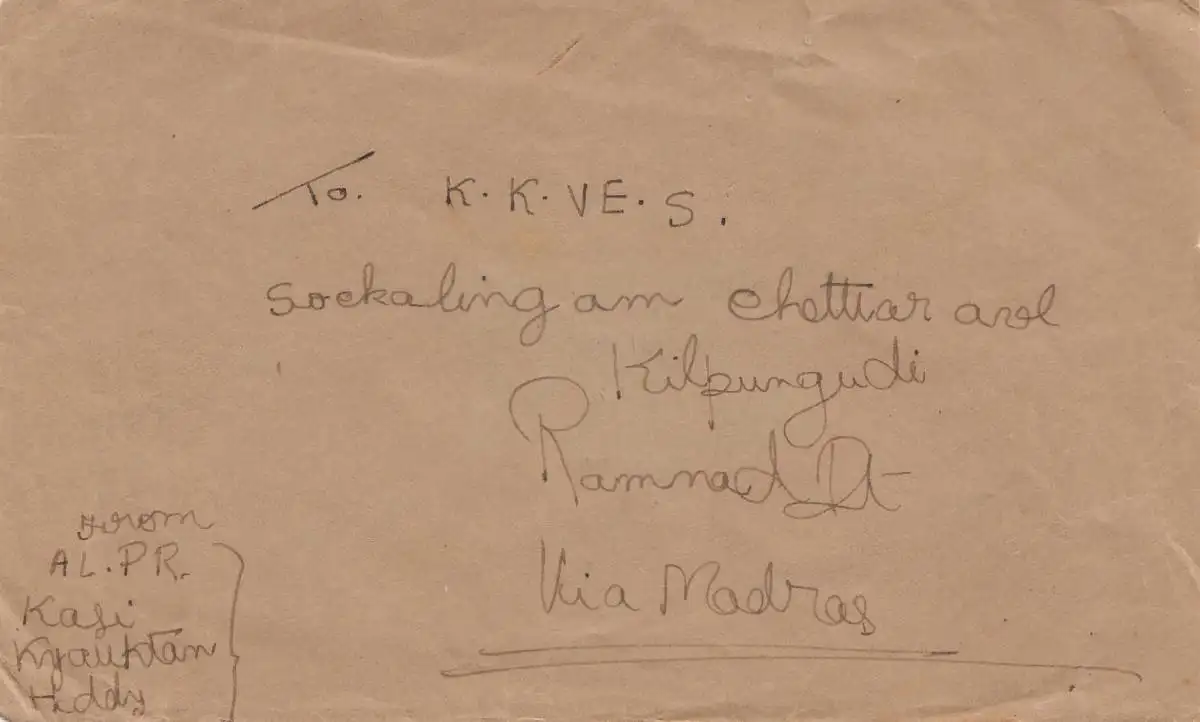 To. K. K. VE. S.
Sockalingam Chettiar avl
Kilpungudi
Ramnad Dt
Via Madras
From
AL. PR.
Kasi
Kyauktan